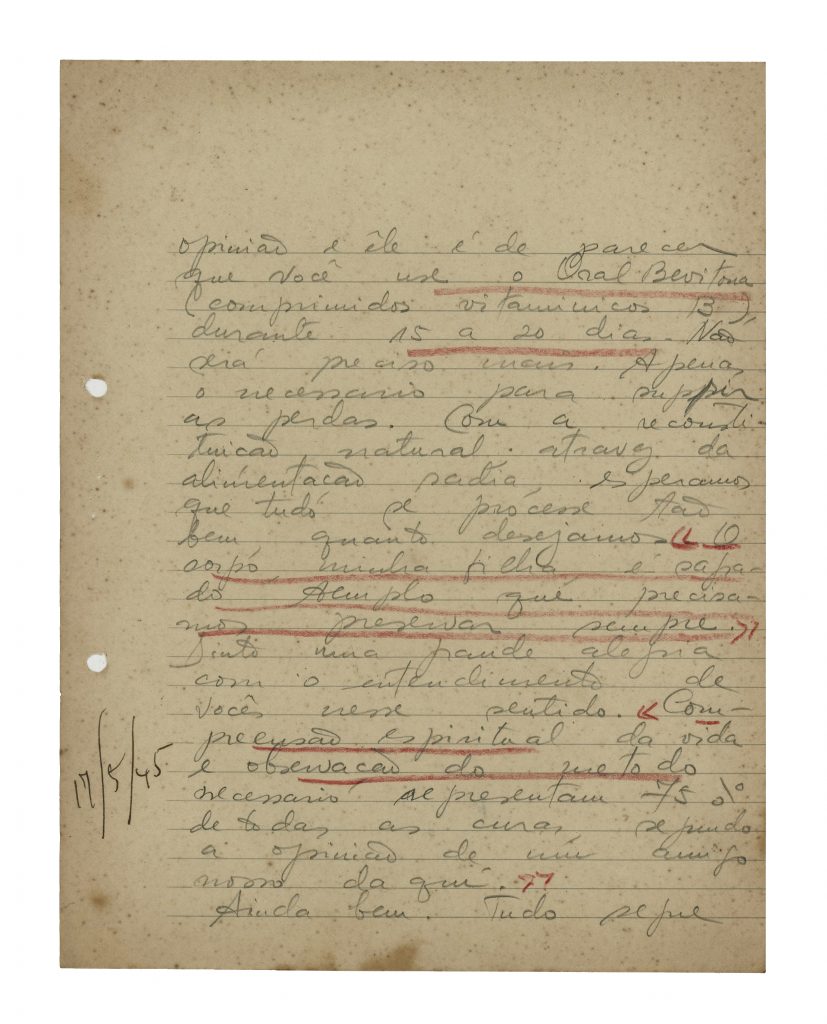 opinião e êle é de parecer
que você use o Oral Bevitona
(comprimidos vitaminicos B),
durante 15 a 20 dias. Não
será preciso mais. Apenas
o necessario para supprir
as perdas. Com a reconsti-
tuicão natural atravez da
alimentacão sadia, esperamos
que tudo se processe tão
bem quanto desejamos. « O
corpo, minha filha, é sagra-
do templo que precisa-
mos preservar sempre. »
Sinto uma grande alegria
com o entendimento de
vocês nesse sentido. « Com-
preensão espiritual da vida
e observacão do metodo
necessario representam 75 %
de todas as curas segundo
a opinião de um amigo
nosso daqui. »
Ainda bem. Tudo segue
17/5/45